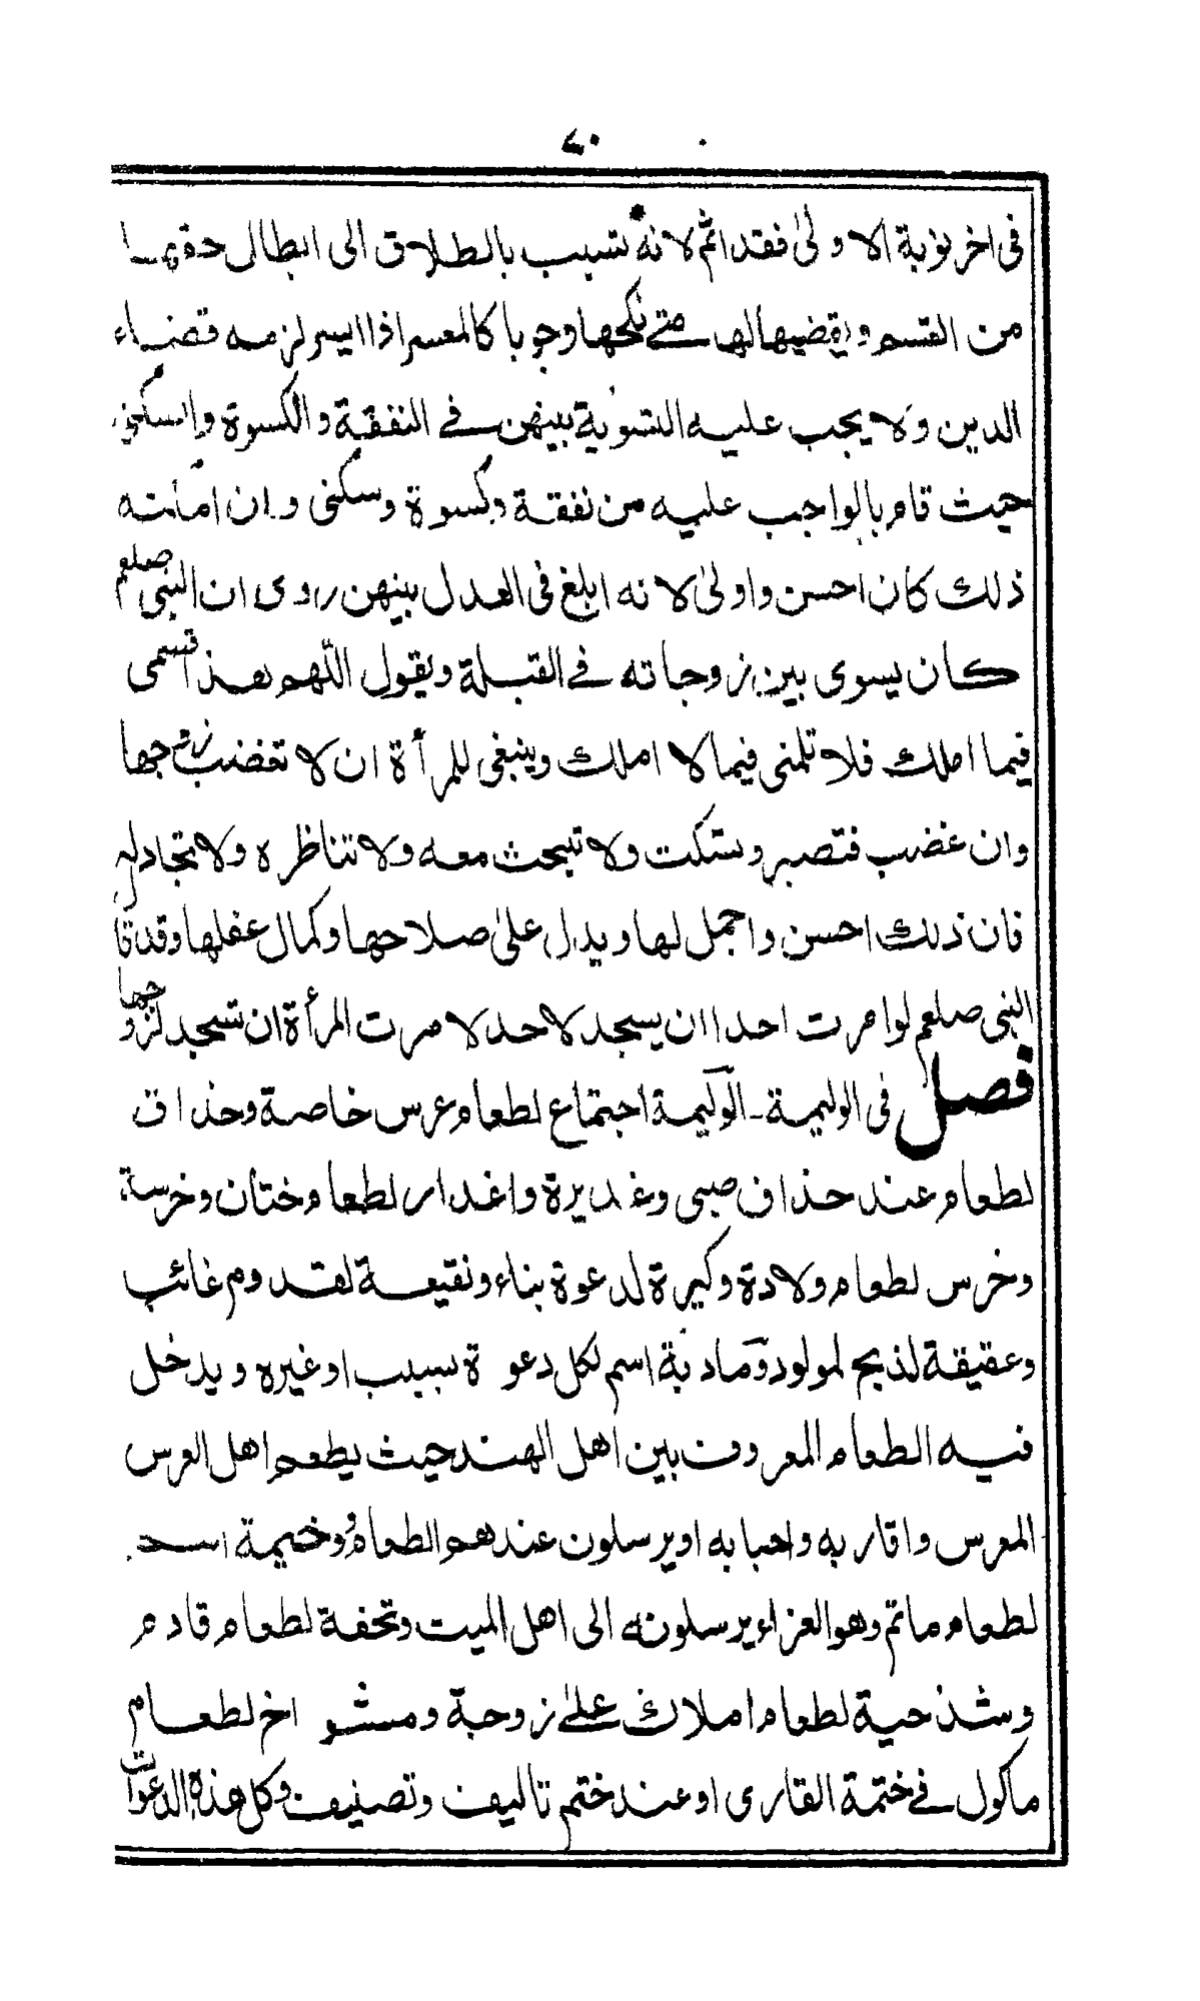 ٤٠
فى اخر نوبة الاولىٰ فقد اثم لانه تسبب بالطلاق الى ابطال حقها
من القسم ويقضيها لها متے نكحها وجوبا كالمعسر اذا ايسر لزمه قضاء
الدين ولا يجب عليه التسوية بينهن فے النفقة والكسوة والسكنى
حيث قام بالواجب عليه من نفقة وكسوة وسكنى وان امكنه
ذلك كان احسن واولىٰ لانه ابلغ فى العدل بينهن روى ان النبى صلعم
كان يسوى بين زوجاته فے القبلة ويقول اللّٰهم هذا قسمى
فيما املك فلا تلمنى فيما لا املك وينبغى للمرأة ان لا تغضب زوجها
وان غضب فتصبر وتسكت ولا تبحث معه ولا تناظره ولا تجادله
فان ذلك احسن واجمل لها ويدل علىٰ صلاحها وكمال عقلها وقد قال
النبى صلعم لو امرت احدا ان يسجد لاحد لامرت المرأة ان تسجد لزوجها
فصل فى الوليمة ـ الوليمة اجتماع لطعام عرس خاصة وحذاق
لطعام عند حذاق صبى وغديرة واغدار لطعام ختان وخرسة
وخرس لطعام ولادة وكيرة لدعوة بناء ونقيعة لقدوم غائب
وعقيقة لذبح لمولود ومادبة اسم لكل دعوة بسبب او غيره ويدخل
فيه الطعام المعروف بين اهل الهند حيث يطعم اهل العرس
المعرس واقاربه واحبابه او يرسلون عندهم الطعام ووضيمة اسم
لطعام ماتم وهو العزاء يرسلونه الى اهل الميت وتحفة لطعام قادم
وشندخية لطعام املاك علےٰ زوجة ومشد اخ لطعام
ماكول فے ختمة القارى او عند ختم تاليف وتصنيف وكل هذه الدعوات